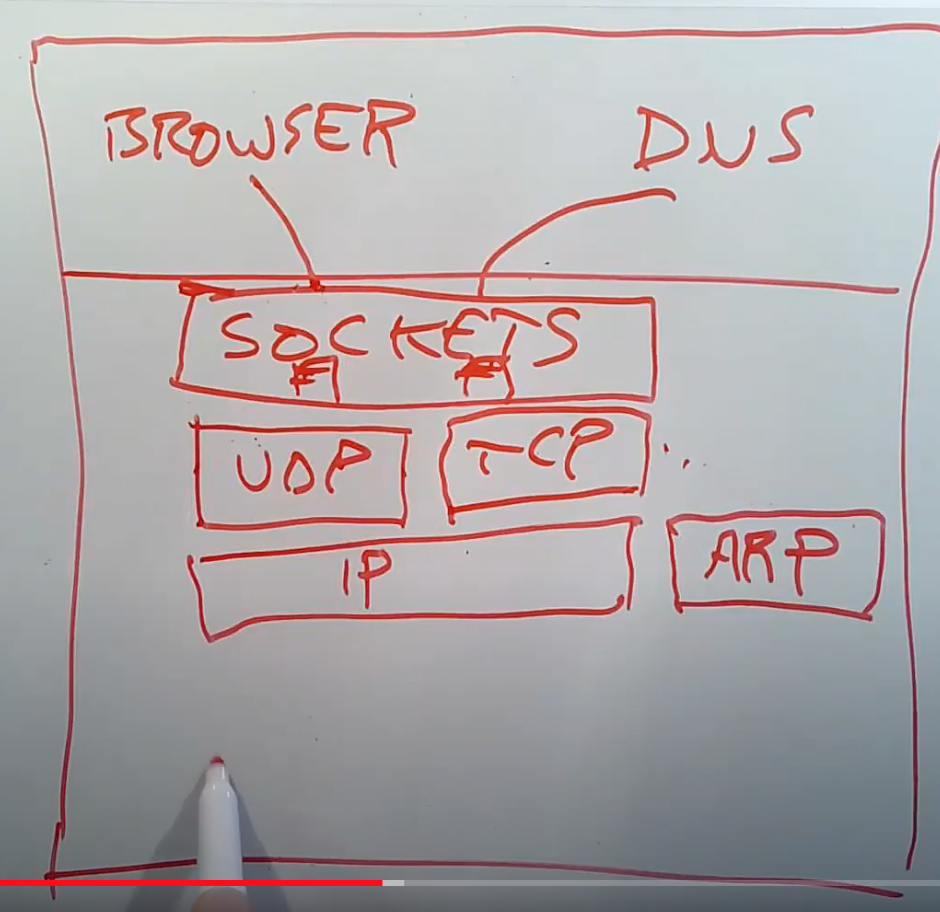 BROWSER DNS
SOCKETS
UDP TCP ...
IP ARP